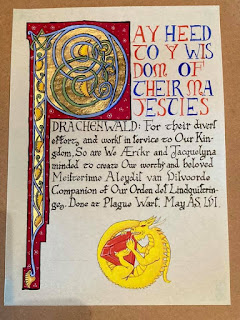 PAY HEED
TO Y WIS
DOM OF
THEIR MA
JESTIES
DRACHENWALD: For their divers
efforts and works in service to Our Kin-
gdom, So are We Ærikr and Jacquelyna
minded to create Our worthy and beloved
Meisterinne Aleydis van Vilvoorde
Companion of Our Orden des Lindquistrin-
ges. Done at Plague Wart. May AS LVI.